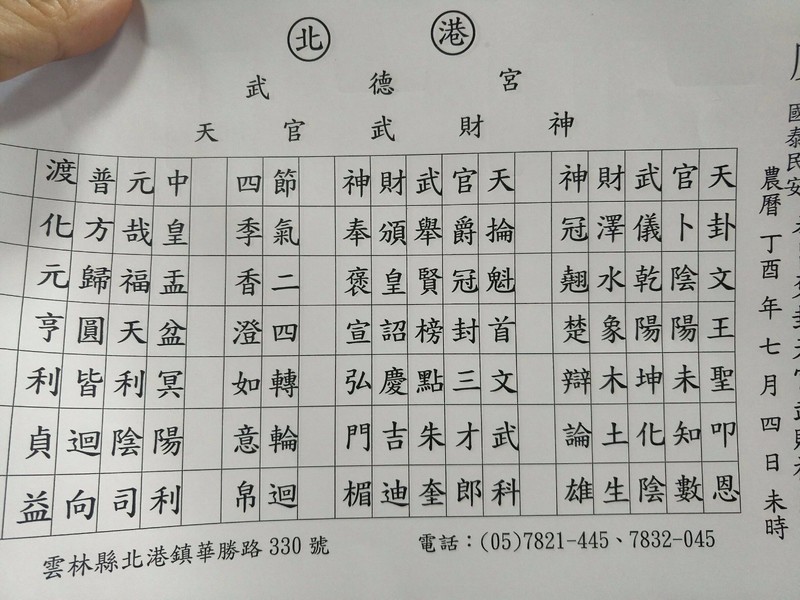 北港
武德宮
天官武財神
國泰民安
農曆丁酉年七月四日未時
天卦文王聖叩恩
官卜陰陽未知數
武儀乾陽坤化陰
財澤水象木土生
神冠翹楚辯論雄
天掄魁首文武科
官爵冠封三才郎
武舉賢榜點朱奎
財頒皇詔慶吉迪
神奉褒宣弘門楣
節氣二四轉輪迴
四季香澄如意帛
中皇盂盆冥陽利
元哉福天利陰司
普方歸圓皆迴向
渡化元亨利貞益
雲林縣北港鎮華勝路 330 號
電話：(05)7821-445、7832-045